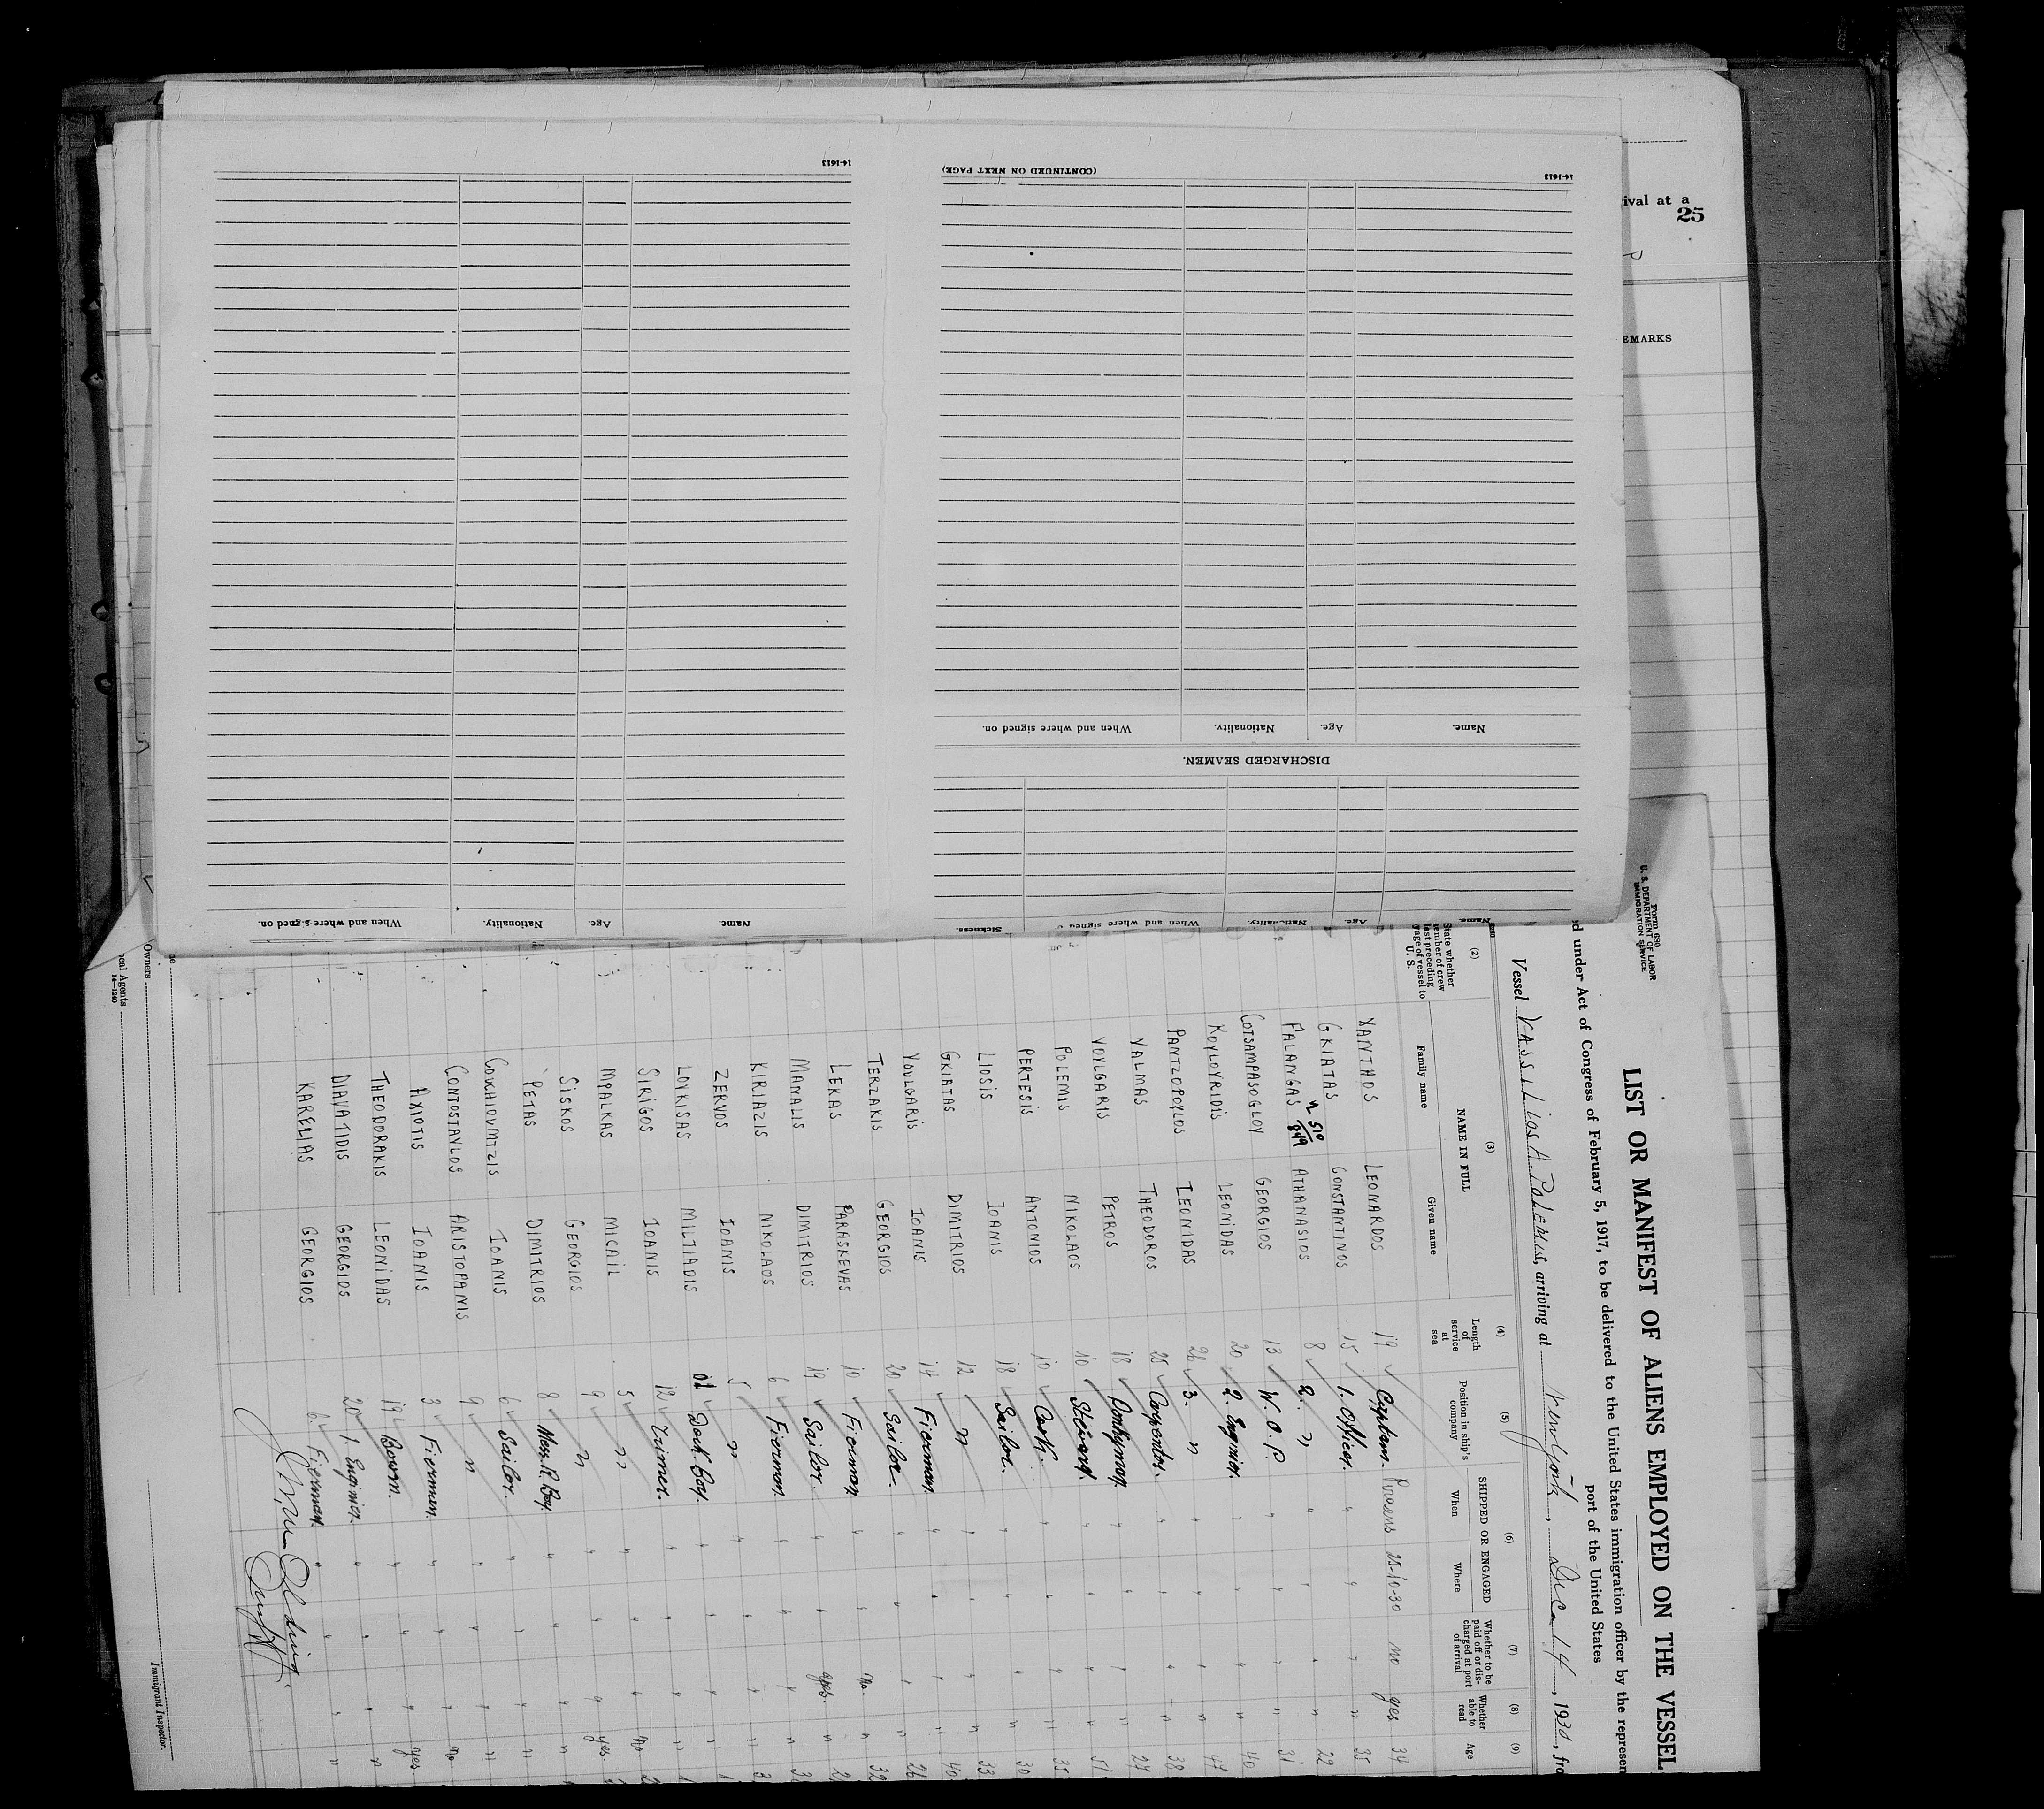 14-1613
When and where signed on.
Nationality.
Age.
Name.
(CONTINUED ON NEXT PAGE)
14-1613
DISCHARGED SEAMEN.
Name.
Age.
Nationality.
When and where signed on.
Name.
Age.
Nationality.
When and where signed
Sickness.
ival at a
25
EMARKS
Form 680
U. S. DEPARTMENT OF LABOR
IMMIGRATION SERVICE
LIST OR MANIFEST OF ALIENS EMPLOYED ON THE VESSEL
d under Act of Congress of February 5, 1917, to be delivered to the United States immigration officer by the represen
port of the United States
Vessel VASSILIOS A. POLEMIS, arriving at New York, Dec. 14, 1930, fro
(2) (3) (4) (5) (6) (7) (8) (9)
State whether member of crew last preceding voyage of vessel to U. S.
NAME IN FULL
Family name
Given name
Length of service at sea
Position in ship's company
SHIPPED OR ENGAGED
When
Where
Whether to be paid off or discharged at port of arrival
Whether able to read
Age
XANTHOS LEONARDOS 19 Captain. Piraeus 25-10-30 no yes 34
GKIATAS CONSTANTINOS 15 1. Officer. " " " " 35
510
849
PALANGAS ATHANASIOS 8 2. " " " " " 22
COTSAMPASOGLOY GEORGIOS 13 W. O. P. " " " " 31
KOYLOYRIDIS LEONIDAS 20 2. Enginier. " " " " 40
PANTZOPOYLOS LEONIDAS 26 3. " " " " " 47
VALMAS THEODOROS 25 Carpenter. " " " " 38
VOYLGARIS PETROS 18 Donkyman. " " " " 27
POLEMIS NIKOLAOS 10 Steivard. " " " " 51
PERTESIS ANTONIOS 10 Cook. " " " " 35
LIOSIS IOANIS 18 Sailor. " " " " 30
GKIATAS DIMITRIOS 12 " " " " " 33
VOULGARIS IOANIS 14 Fierman. " " " " 40
TERZAKIS GEORGIOS 20 Sailor. " " " " 26
LEKAS PARASKEVAS 10 Fierman. " " no. " 32
MANALIS DIMITRIOS 19 Sailor. " " yes. "
KIRIAZIS NIKOLAOS 6 Fierman. " " " "
ZERVOS IOANIS 5 " " " " "
LOYKISAS MILTIADIS Deck Boy. " " " "
SIRIGOS IOANIS 12 Trimer. " " " "
MPALKAS MICAIL 5 " " " " no.
SISKOS GEORGIOS 9 " " " " yes.
PETAS DIMITRIOS 8 Mess. R. Boy. " " " "
COUCHIOUMTZIS IOANIS 6 Sailor. " " " "
CONTOSTAVLOS ARISTOPANIS 9 " " " " "
AXIOTIS IOANIS 3 Fierman. " " " no.
THEODORAKIS LEONIDAS 19 Bosvn. " " " yes
DIAVATIDIS GEORGIOS 20 1. Enginier. " " " "
KARELIAS GEORGIOS 6 Fierman. " " " "
Owners
cal Agents
14-1240
Immigrant Inspector.